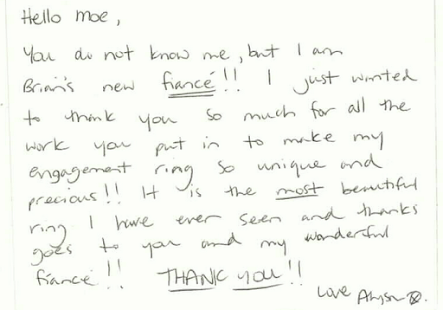 Hello Moe,
You do not know me, but I am
Brian's new fiancé!! I just wanted
to thank you so much for all the
work you put in to make my
engagement ring so unique and
precious!! It is the most beautiful
ring I have ever seen and thanks
goes to you and my wonderful
fiancé!! THANK YOU!!
Love